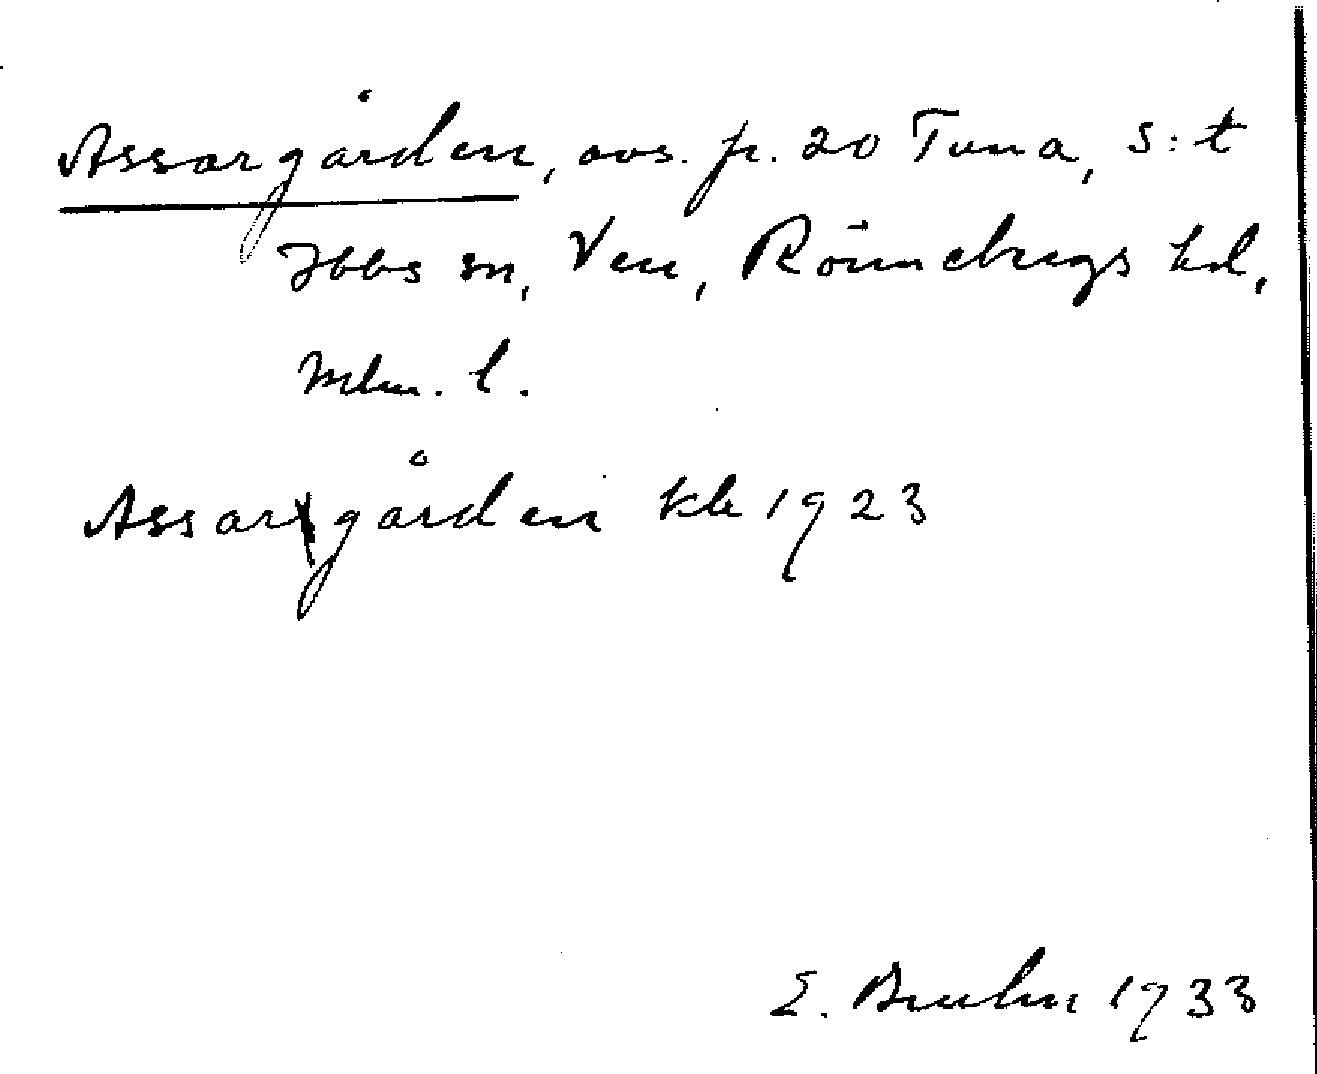 Assargården, avs. fr. 20 Tuna, S:t
Ibbs sn, Ven, Rönnebergs hd,
Mlm. l.
Assargården kb 1923
E. Bruhn 1933